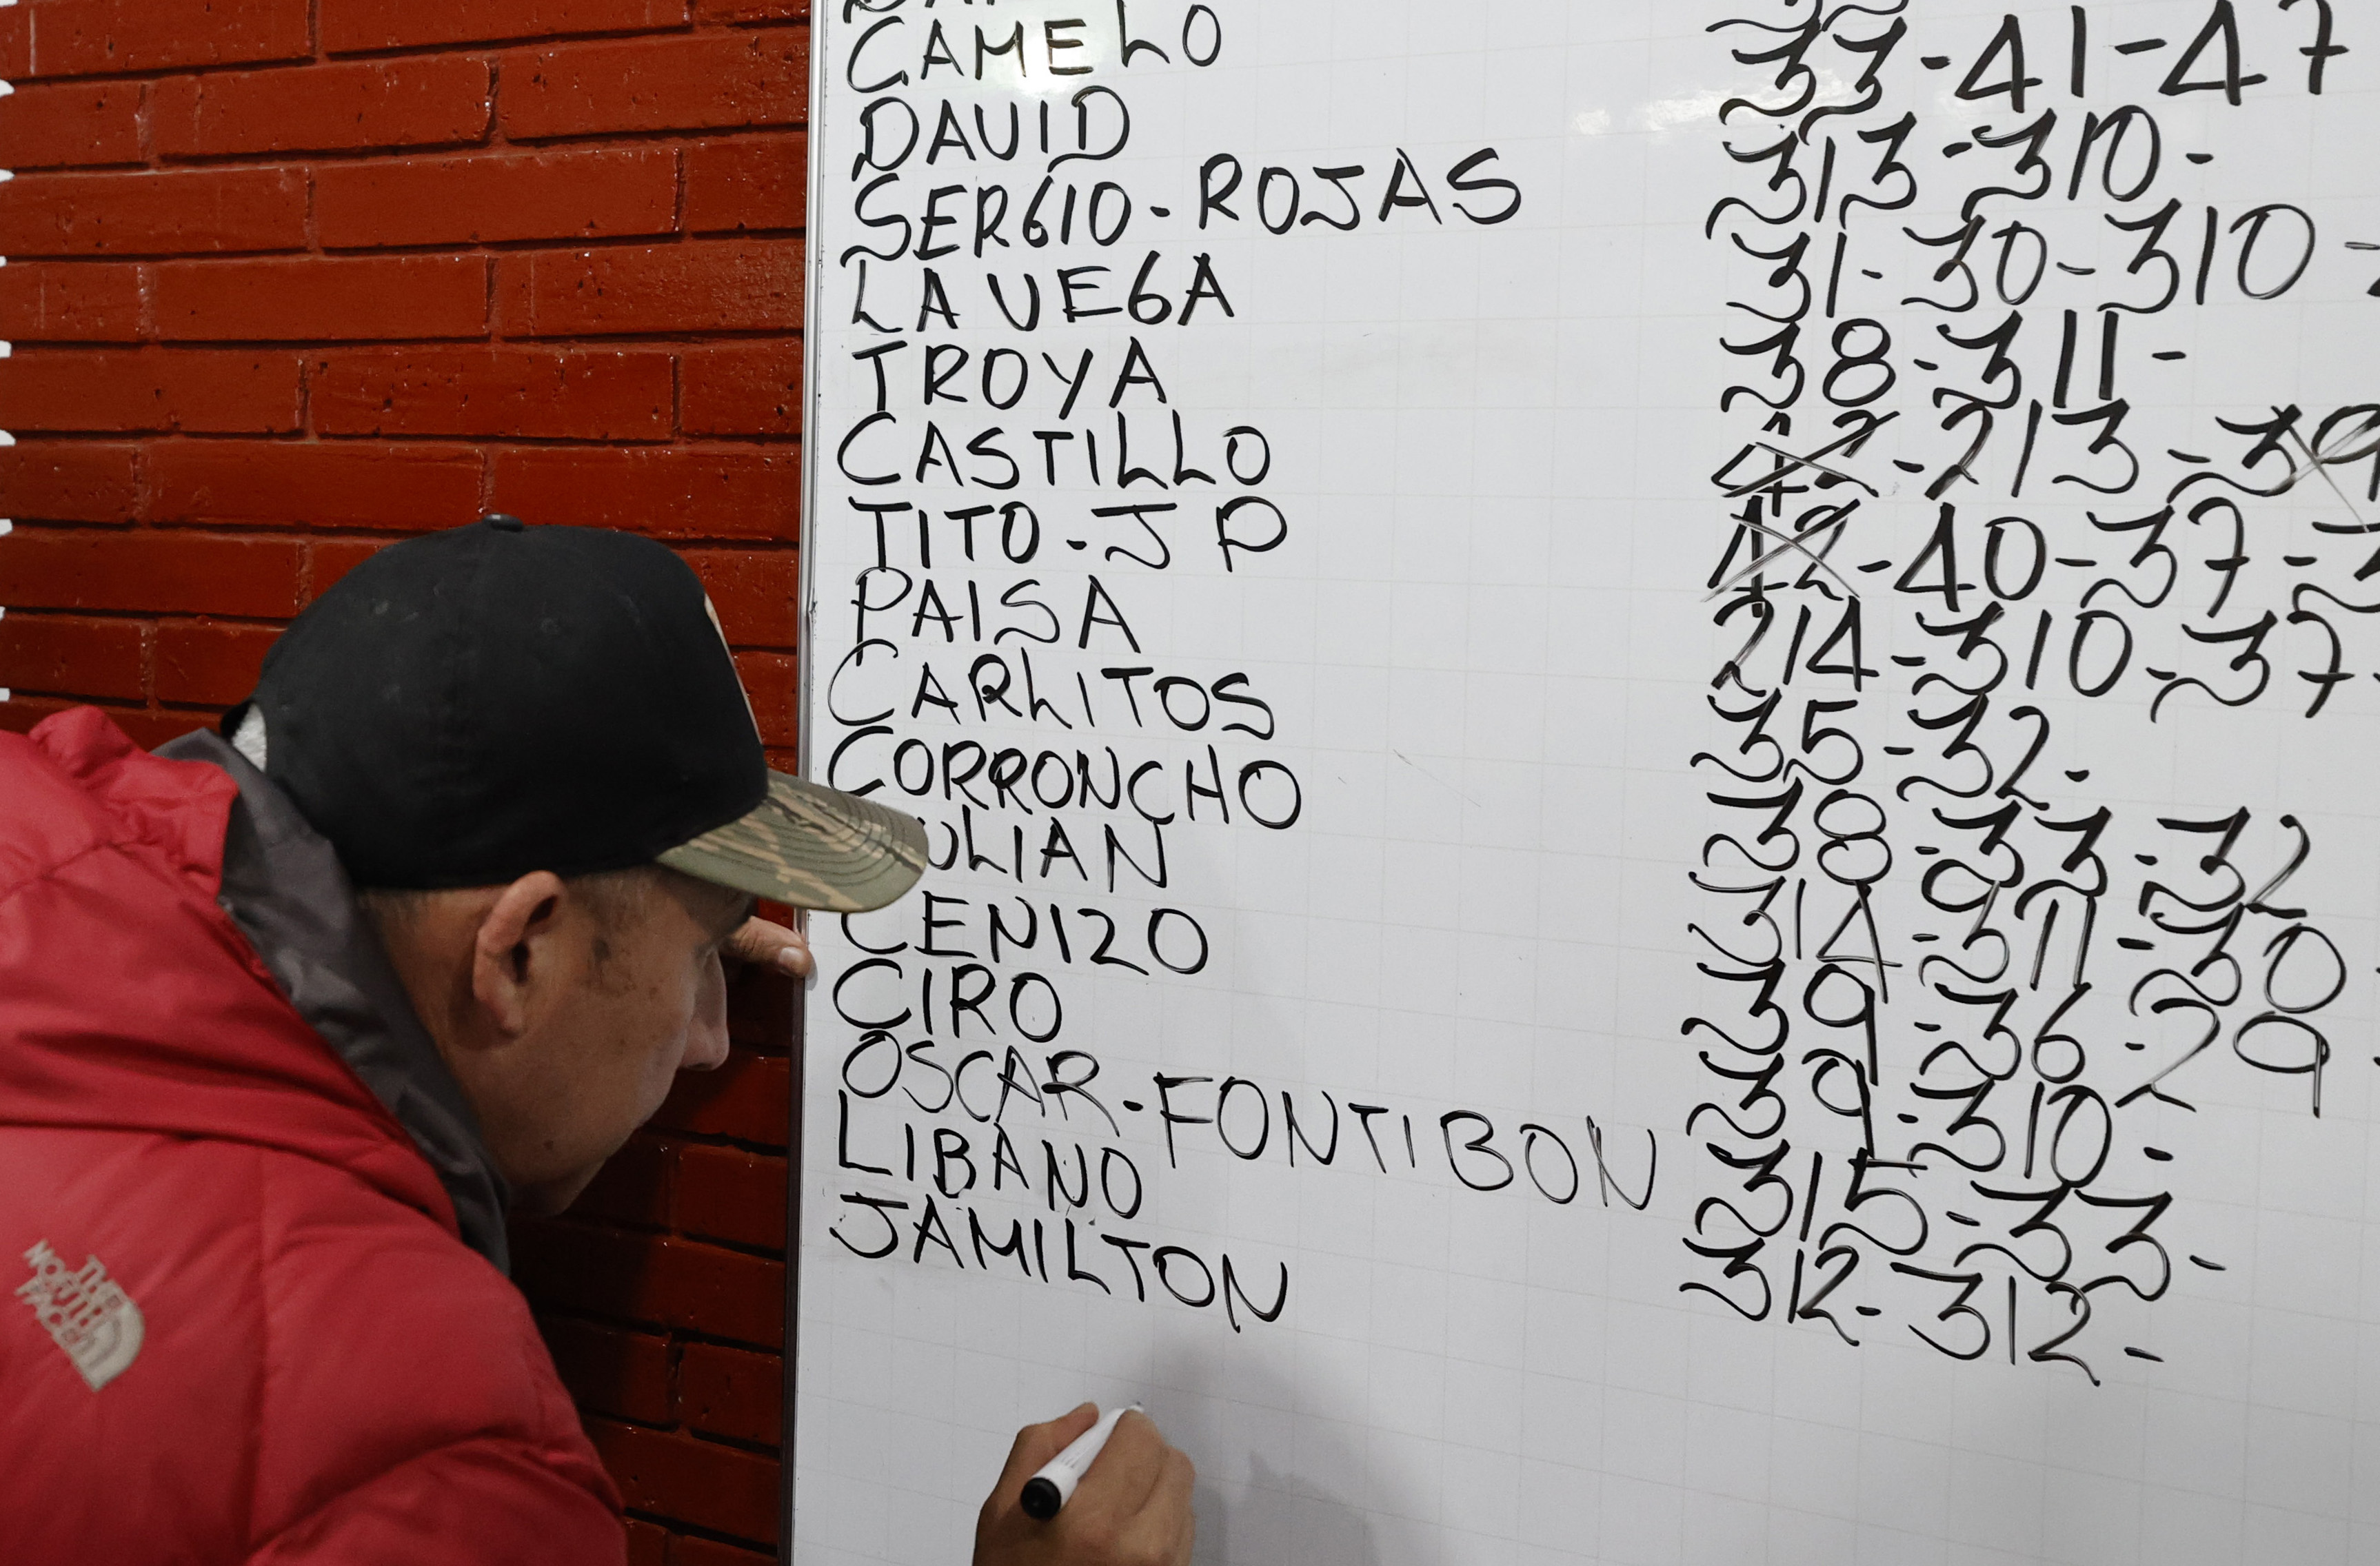 CAMELO
DAVID
SERGIO - ROJAS 33-41-47
LA VEGA 313-310-
TROYA 31-30-310-
CASTILLO 38-311-
TITO - JP 42-213-39
PAISA 42-40-37-3
CARLITOS 214-310-37-
CORRONCHO 35-32-
ULIAN 38-33-32
CENIZO 314-311-30-
CIRO 39-36-29-
OSCAR - FONTIBON 39-310-
LIBANO 315-33-
JAMILTON 312-312-
THE
NORTH
FACE